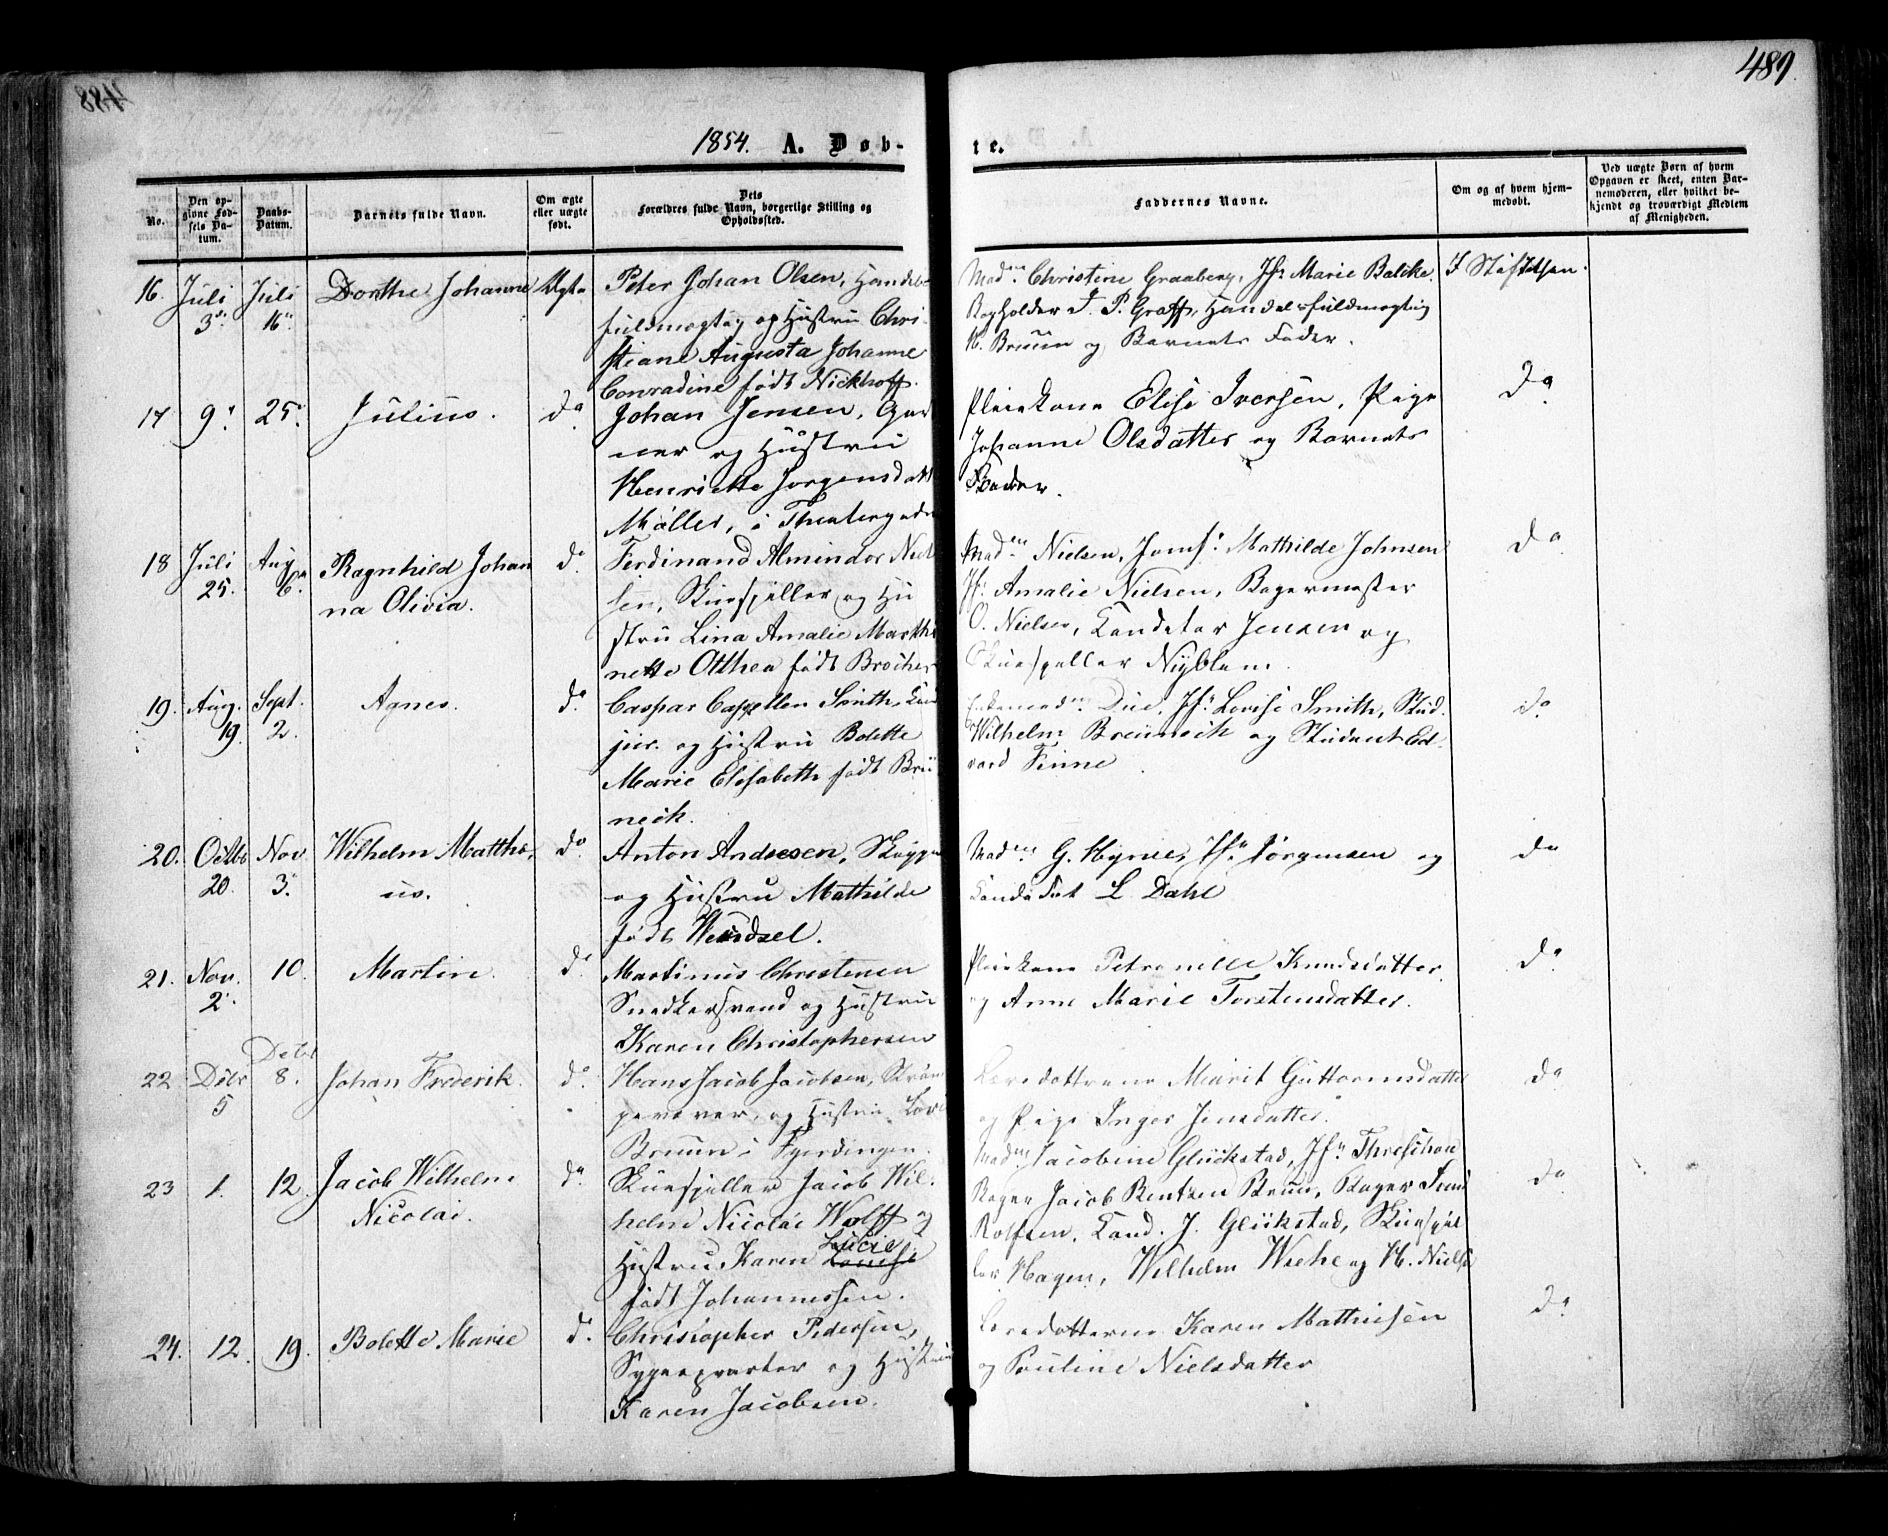 488
489.
1854. A. Døb-
te.
No.
Den op-
givne Fød-
sels Da-
tum.
Daabs-
Datum.
Barnets fulde Navn.
Om ægte
eller uægte
født.
Dets
Forældres fulde Navn, borgerlige Stilling og
Opholdssted.
Faddernes Navne.
Om og af hvem hjem-
medøbt.
Ved uægte Børn af hvem
Opgaven er skeet, enten Bar-
nemoderen, eller hvilket be-
kjendt og troværdigt Medlem
af Menigheden.
16. Juli 3. Juli 16. Dorthe Johanne Ægte
Peter Johan Olsen, Handels-
fuldmægtig og Hustru Chri-
stiane Augusta Johanne
Conradine født Nickhoff.
Mad. Christine Graaberg, Jfr. Marie Balcke.
Bogholder J. P. Graff, Handelsfuldmægtig
H. Bruun og Barnets Fader.
I Stiftelsen.
17 9. 25. Julius. do.
Johan Jensen, Gart
ner og Hustru
Henriette Jørgensdatt
Møller, i Theatergaden
Pleiekone Elise Iversen, Pige
Johanne Olsdatter og Barnets
Fader.
do
18 Juli 25. Aug. 6. Ragnhild Johan
na Olivia. do.
Ferdinand Almindor Niel
sen, Skuespiller og Hu
stru Lina Amalie Marthi
nette Otthea født Brocher
Mad. Nielsen, Jomf. Mathilde Johnsen
Jf. Amalie Nielsen, Bagermester
O. Nielsen, Candidat Jensen og
Skuespiller Nyblom.
do
19. Aug. 19. Sept. 2. Agnes. do
Caspar Cappellen Smith, Cand
jur. og Hustru Bolette
Marie Elisabeth født Brü
nech.
Due, Jfr. Lovise Smith, Stud.
Wilhelm Brünnech og Student Ed-
vard Finne.
do
20. Octbr 20. Nov. 3. Wilhelm Matthæ,
us. do.
Anton Andresen,
og Hustru Mathilde
født Wendsel.
Mad. G. Jfr. Jörgensen og
Candidat L. Dahl
do
21. Nov. 2. 10. Martin. do
Martinus Christensen
Snedkersvend og Hustru
Karen Christophersen
Pleiekone Petronelle Knudsdatter
og Anne Marie Torstensdatter.
do
22 Dcbr 5 Decbr 8. Johan Frederik. do.
Hans Jacob Jacobsen, Ström
pevæver, og Hustru
Bruun i Fjerdingen.
Læredatterne Marit Guttormsdatter
og Pige Inger Jensdatter.
do
23 1. 12. Jacob Wilhelm
Nicolai. do.
Skuespiller Jacob Wil-
helm Nicolai Wolff og
Hustru Karen Lucie Lovise
født Johannessen.
Mad. Jacobine Glückstad, Jfr.
Bager Jacob Bentzen Bruun, Bager
Rolfsen, Cand. J. Glückstad, Skuespil
ler Hagen, Wilhelm Wiehe og H. Nielsen
do
24. 12. 19. Bolette Marie do.
Christopher Pedersen,
Sygeopvarter og Hustru
Karen Jacobsen.
Læredatterne Karen Mathiesen
og Pauline Nielsdatter
do